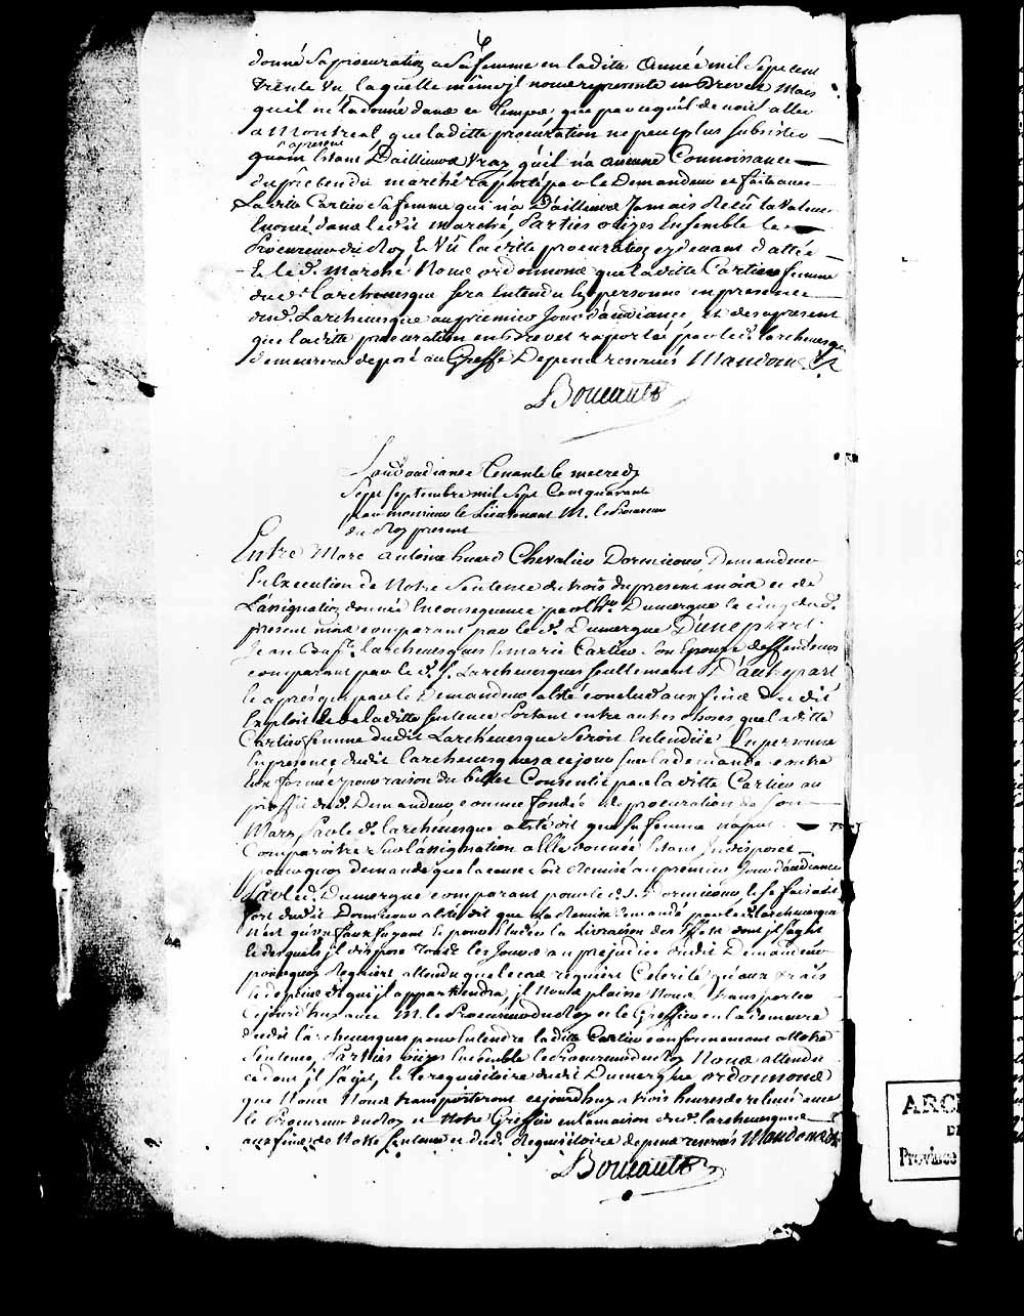 6
donné sa procuration a sa femme en ladite année mil sept cent
trente un laquelle mème jl nous represente en Brevet Mais
quil ne l'a donné dans ce temps, que parcequ'il devoit aller
a Montreal, que laditte procuration ne peut plus subsister
apresent
quoin Estant D'ailleurs vray qu'il n'a aucune Connoissance
du pretendu marché raporté par le Demandeur et fait avec
La ditte Cartier sa femme qui n'a D'ailleurs Jamais Receu la Valeur
Enoncé dans ledit marché, Parties ouyes Ensemble le
Procureur du Roy Et Vû laditte procuration cy devant dattée
Et le d. marché Nous ordonnons que laditte Cartier femme
dud. Larchevesque sera Entendu En personne en presence
dud. Larchevesque au premier Jour d'audiance, et des apresent
que laditte procuration en Brevet raportée par led. Larchevesque
demeurera deposé au Greffe Depens reservés Mandons &
Boucault
audiance Tenante le mercredy
Sept Septembre mil Sept Cent quarante
par monsieur le Lieutenant M. le Procureur
du Roy present
Entre Marc Antoine huard Chevalier Dormicour Demandeur
En Execution de Notre Sentence du trois du present mois et de
L'assignation donnée En consequence par Dumergue le cinq dud.
present mois comparant par le d. Dumergue D'une part
Jean Bapt. Larchevesque et marie Cartier son Epouse deffendeurs
comparant par le d. S. Larchevesque seullement D'autre part
le après que par le Demandeur a été conclud aux fins du dit
Exploit de laditte sentence Portant entre autres choses que laditte
Cartier femme dudit Larchevesque Seroit Entendüe En personne
En presence dudit Larchevesque a ce jour sur la demande contre
Eux formée pour raison du billet Consentie par laditte Cartier au
proffit dud. Demandeur comme fondée de procuration de son
Mary Par le d. Larchevesque a été dit que sa femme n'a pu
Comparoitre Sur l'assignation a Elle donnée Etant Indisposée
pourquoy demande que la cause soit Remise au premier Jour d'audiance
Par led. Dumergue comparant pour le d. S. Dormicour et se faisant
fort dudit Dormicour a été dit que la Remise demandé par le d. Larchevesque
n'est qu'un faux fuyant pour Eluder la Livraison des Effets dont jl s'agit
desquels jl dispose Tous les Jours au prejudice dudit Demandeur
pourquoy Requiert attendu que le cas requiert Celerité qu'aux frais
et depens de qui jl appartiendra, jl Nous plaise Nous transporter
Cejourd'huy avec M. le Procureur du Roy et le Greffier en la demeure
dudit Larchevesque pour Entendre laditte Cartier conformement a Notre
Sentence, Parties ouyes Ensemble le Procureur du Roy Nous attendu
ce dont jl s'agit, Et le requisitoire dudit Dumergue ordonnons
que Nous Nous transporterons cejourd'huy a trois heures de relevée avec
le Procureur du Roy et Notre Greffier en la maison dud. Larchevesque
aux fins de Notre Sentence et dud. Requisitoire depens reservés Mandons &
Boucault
ARC
DE
Province